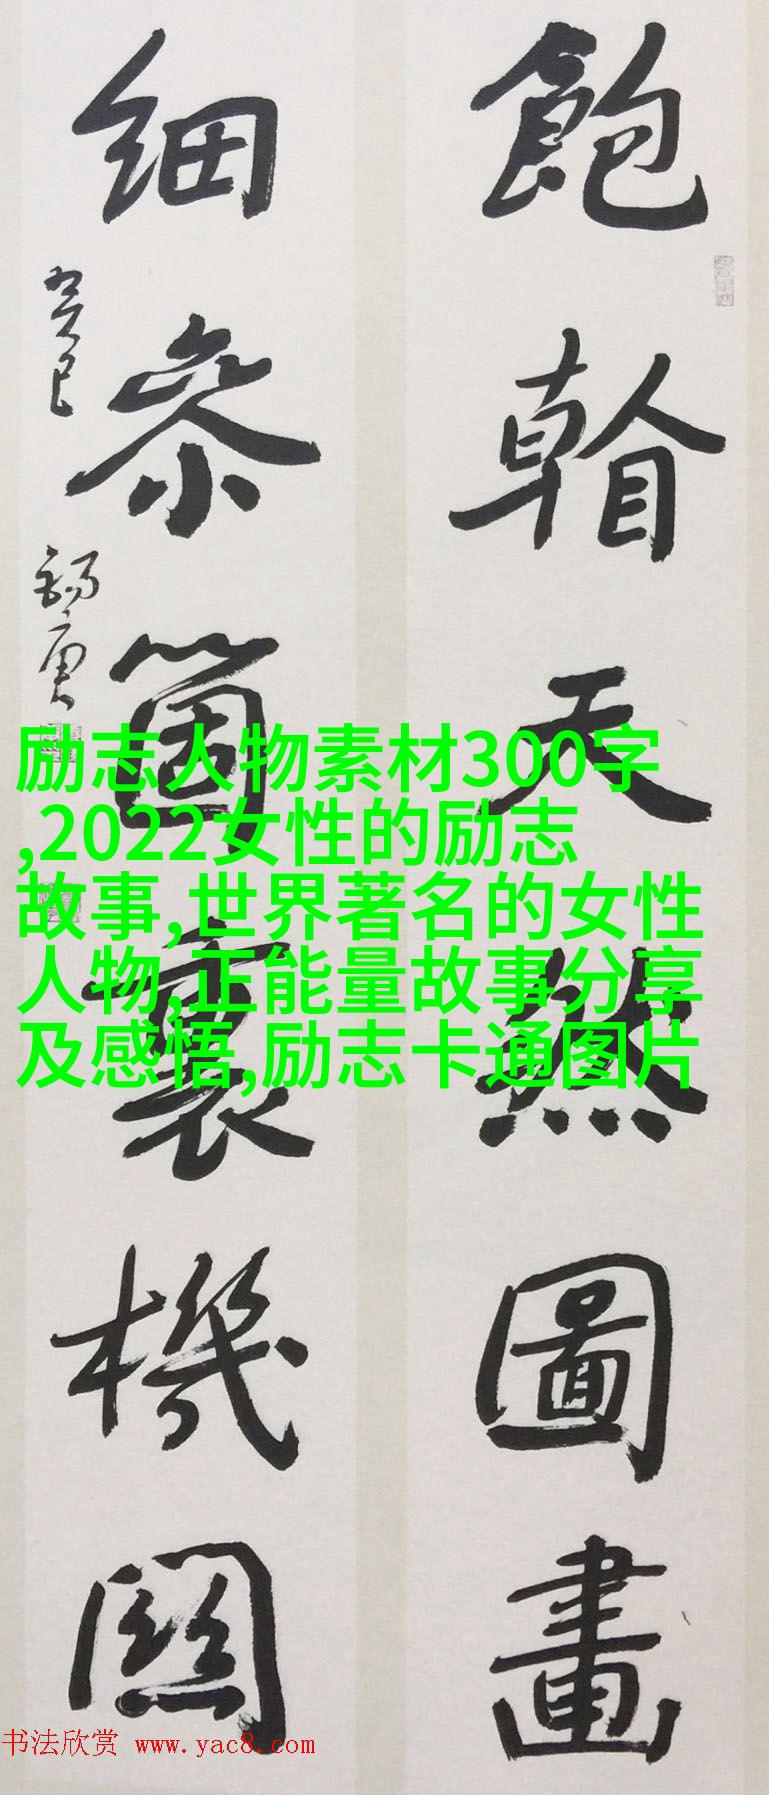 飽看天然圖畫
細參箇裏機關
癸巳
錫庚
励志人物素材300字
,2022女性的励志
故事,世界著名的女性
人物,正能量故事分享
及感悟,励志卡通图片
书法欣赏 www.yac8.com